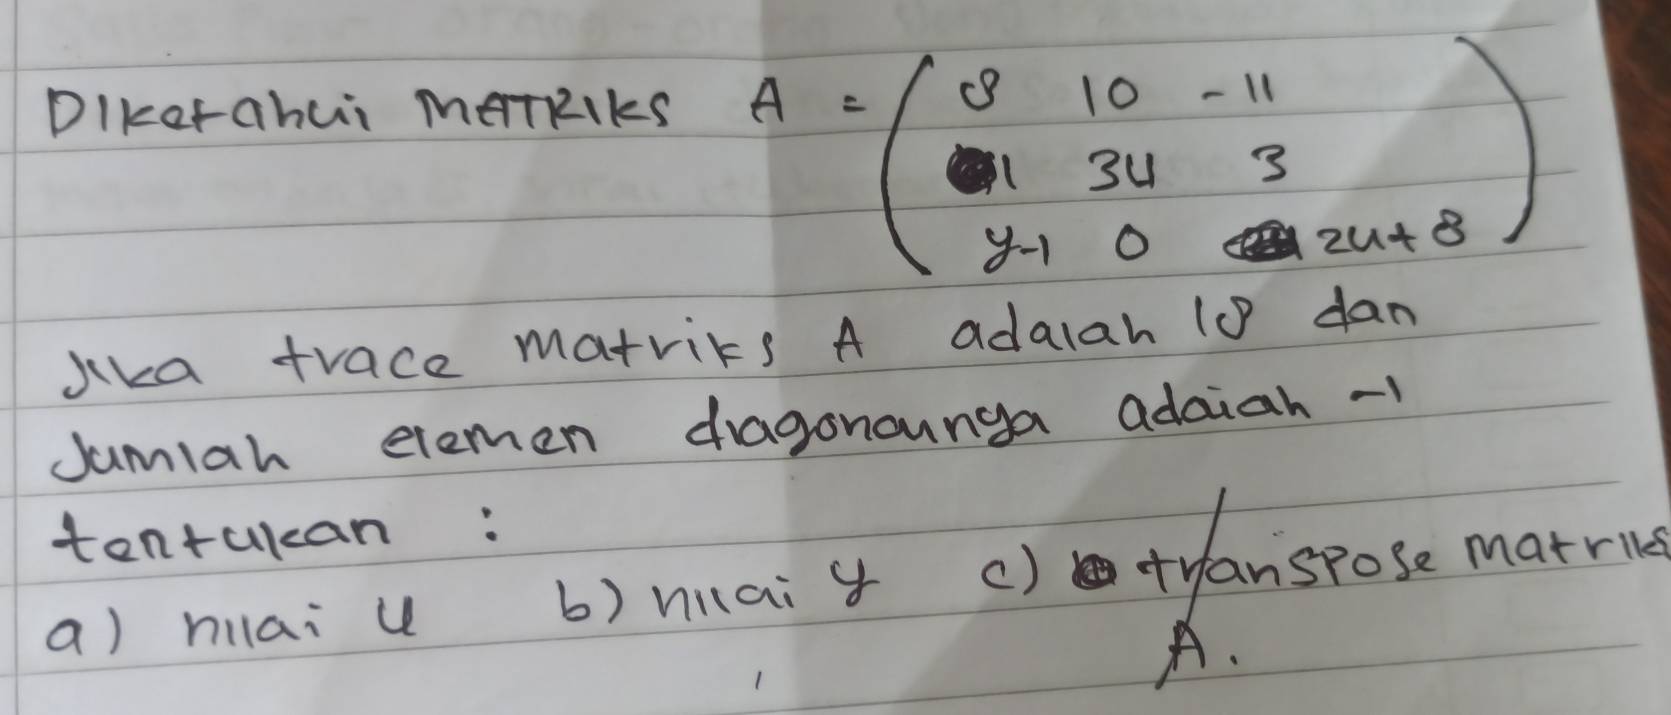 Diketahui MATRIKS A = ( 8 10 -11
1 3u 3
y-1 0 2u+8 )
Jika trace matriks A adalah 18 dan
Jumlah elemen diagonalnya adalah -1
tentukan :
a) nilai u b) nilai y c) transpose matriks
A.